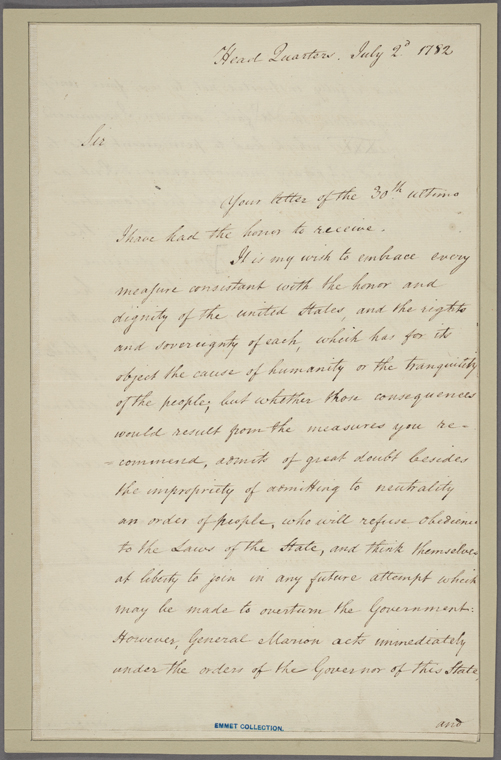 Head Quarters. July 2d. 1782
Sir
Your letter of the 30th ultimo
I have had the honor to receive.
It is my wish to embrace every
measure consistant with the honor and
dignity of the united States, and the rights
and sovereignty of each, which has for its
object the cause of humanity or the tranquility
of the people; but whether those consequences
would result from the measures you re-
-commend, admits of great doubt besides
the impropriety of admitting to neutrality
an order of people, who will refuse obedience
to the Laws of the State, and think themselves
at liberty to join in any future attempt which
may be made to overturn the Government:
However, General Marion acts immediately
under the orders of the Governor of this State,
and
EMMET COLLECTION.